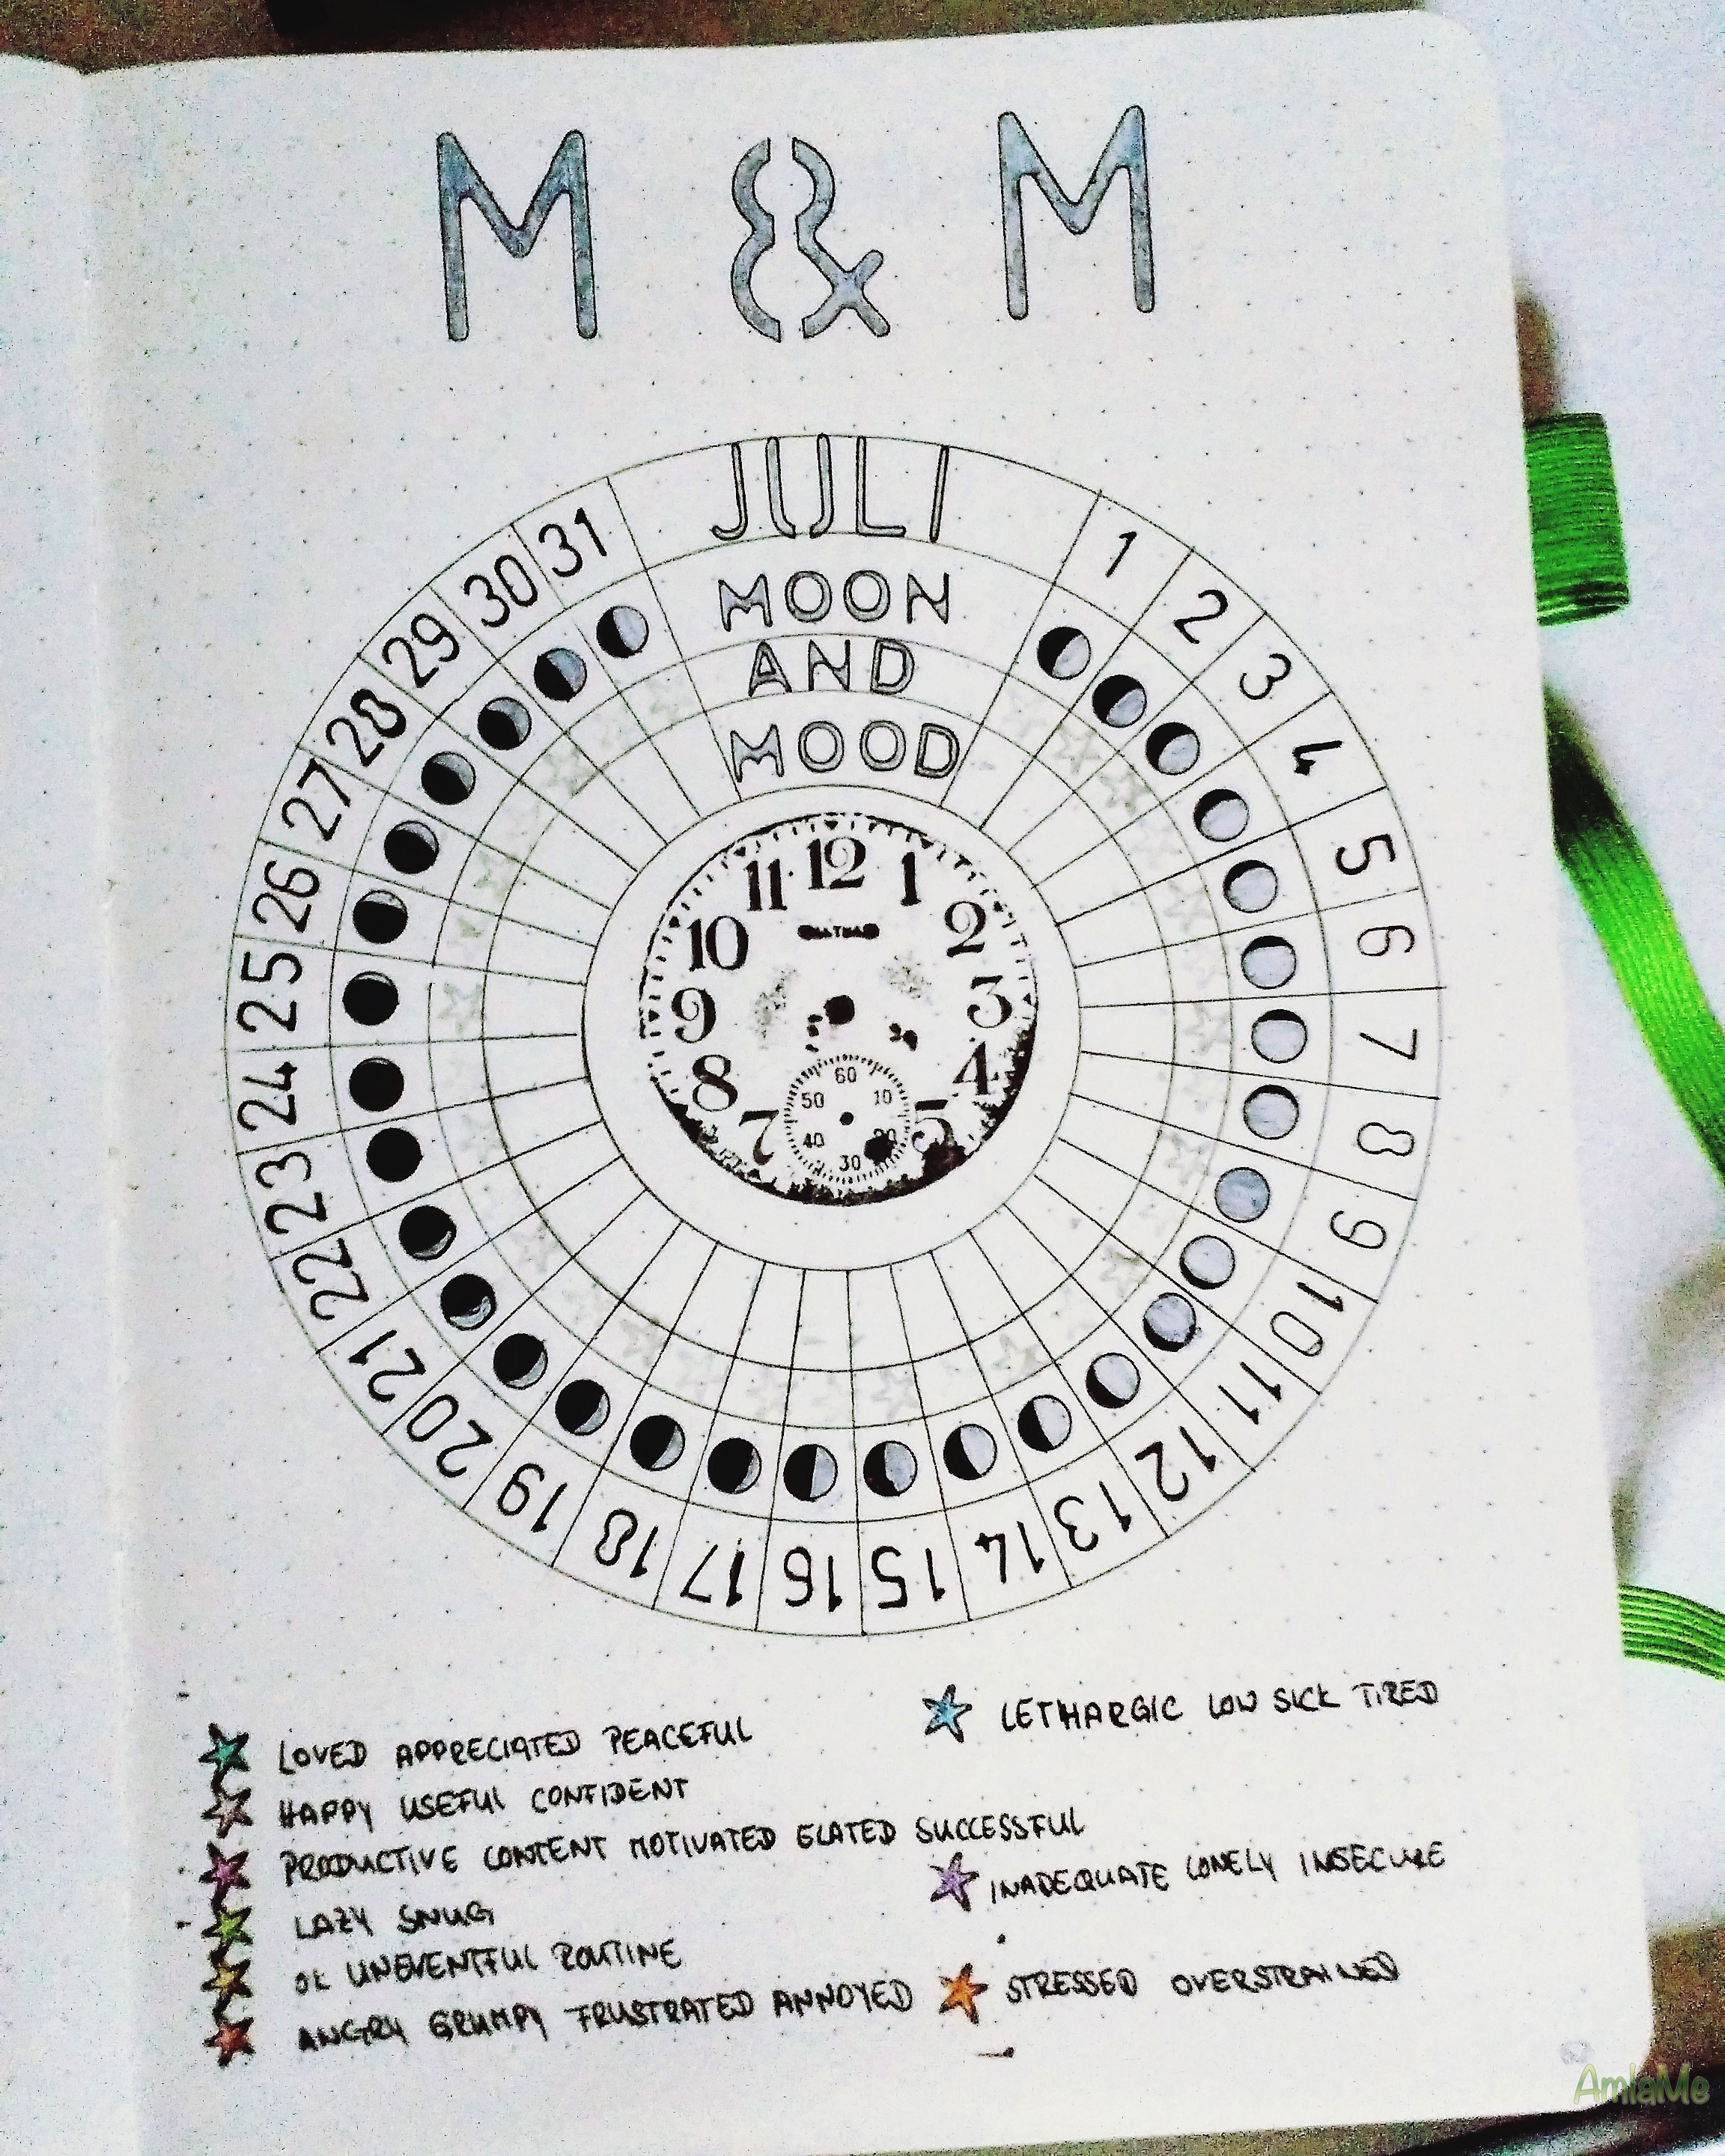 M & M
JULI
MOON
AND
MOOD
1
2
3
4
5
6
7
8
9
10
11
12
13
14
15
16
17
18
19
20
21
22
23
24
25
26
27
28
29
30
31
12
1
2
3
4
5
7
8
9
10
11
60
10
20
30
40
50
LOVED APPRECIATED PEACEFUL
HAPPY USEFUL CONFIDENT
PRODUCTIVE CONTENT MOTIVATED ELATED SUCCESSFUL
LAZY SNUG
OK UNEVENTFUL ROUTINE
ANGRY GRUMPY FRUSTRATED ANNOYED
LETHARGIC LOW SICK TIRED
INADEQUATE LONELY INSECURE
STRESSED OVERSTRAINED
AmlaMe